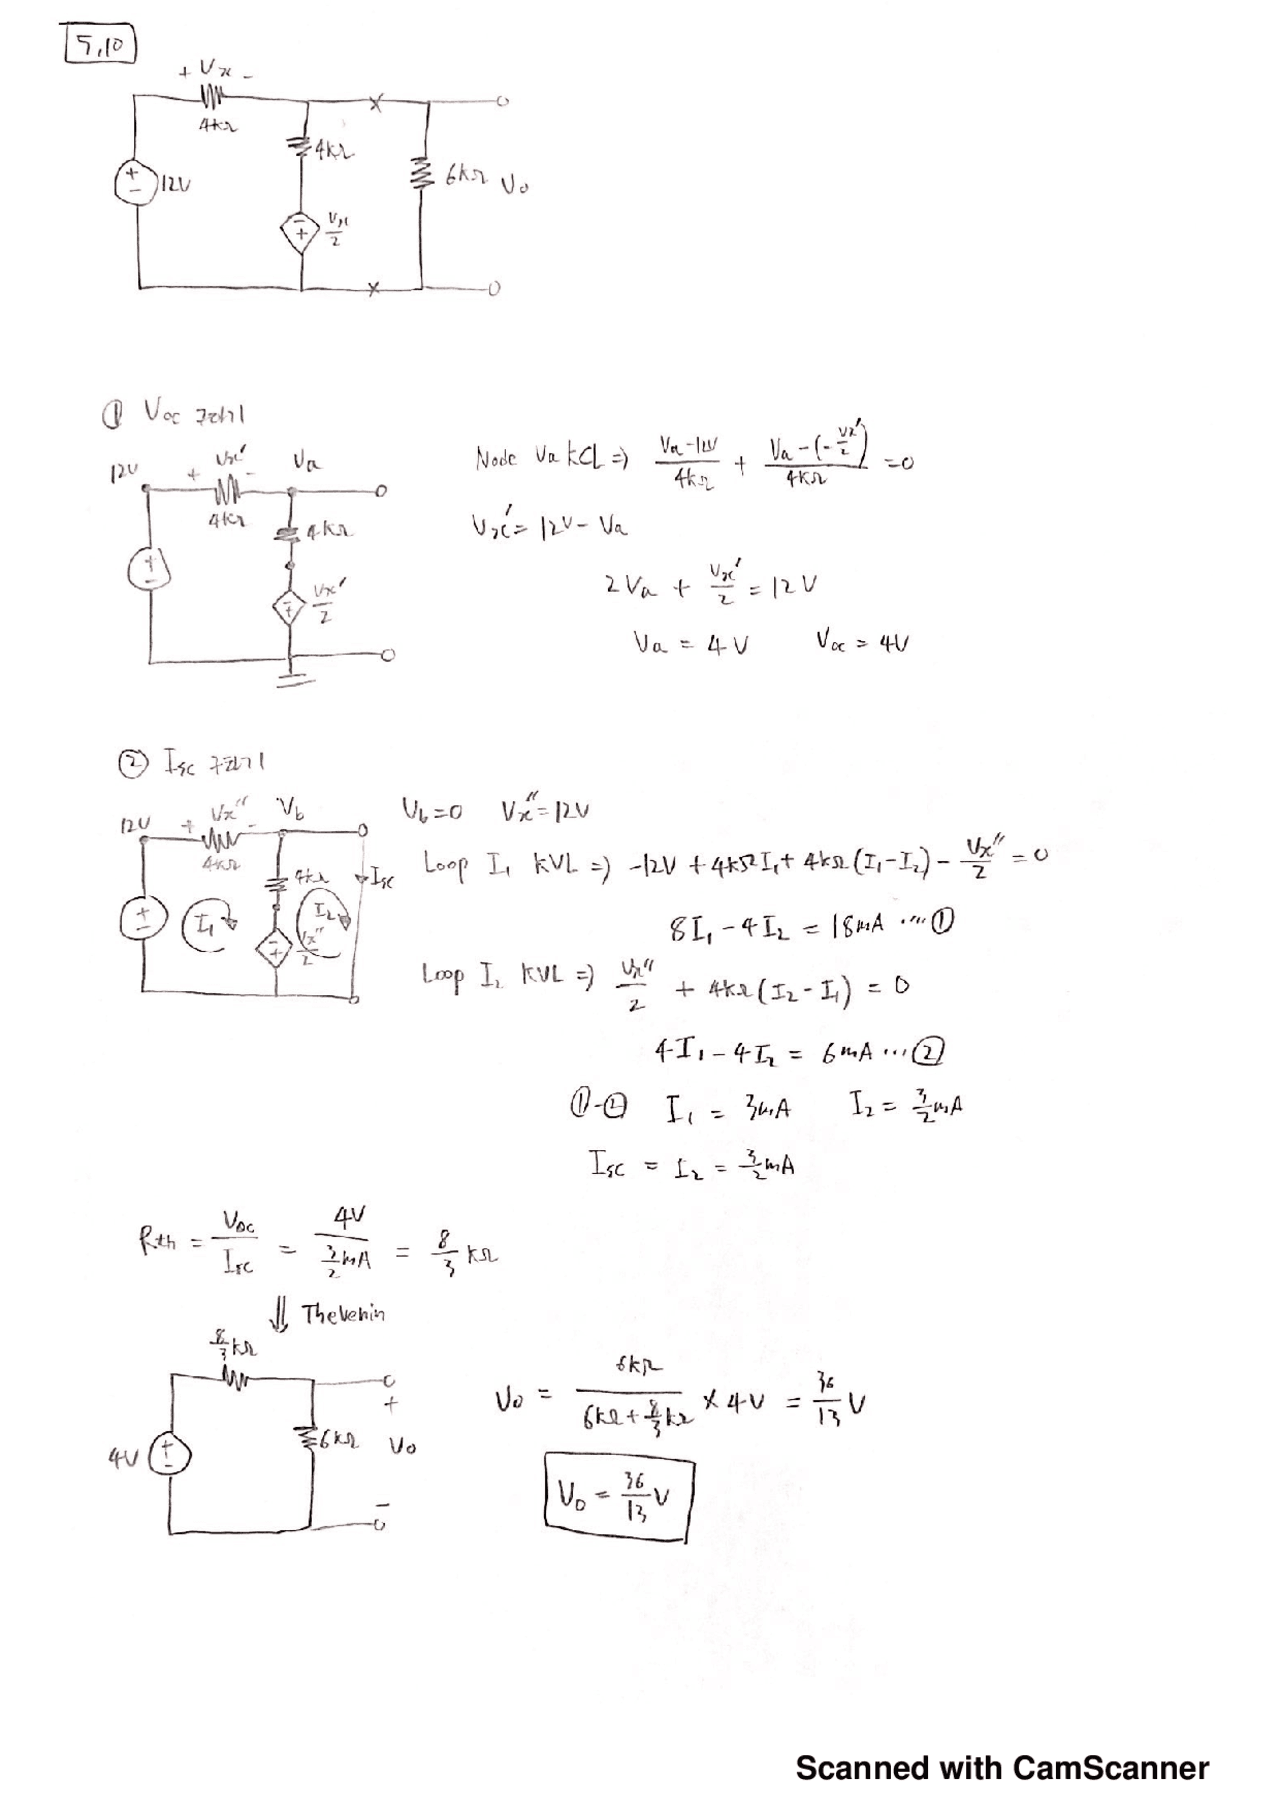 5.10
+ Vx -
4kΩ
4kΩ
12V
6kΩ Vo
Vx/2
① Voc 구하기
12V + Vx' - Va
4kΩ
4kΩ
Vx'/2
Node Va KCL ⇒ (Va-12V)/4kΩ + (Va-(-Vx'/2))/4kΩ =0
Vx' = 12V - Va
2Va + Vx'/2 = 12V
Va = 4V Voc = 4V
② Isc 구하기
12V + Vx'' - Vb
4kΩ
4kΩ
Isc
I1 I2
Vx''/2
Vb=0 Vx''=12V
Loop I1 KVL ⇒ -12V + 4kΩI1 + 4kΩ(I1-I2) - Vx''/2 = 0
8I1 - 4I2 = 18mA ···· ①
Loop I2 KVL ⇒ Vx''/2 + 4kΩ(I2 - I1) = 0
4I1 - 4I2 = 6mA ··· ②
①-② I1 = 3mA I2 = 3/2 mA
Isc = I2 = 3/2 mA
Rth = Voc/Isc = 4V/(3/2 mA) = 8/3 kΩ
⇓ Thevenin
8/3 kΩ
4V
6kΩ
+
Vo
-
Vo = 6kΩ/(6kΩ + 8/3 kΩ) × 4V = 36/13 V
Vo = 36/13 V
Scanned with CamScanner